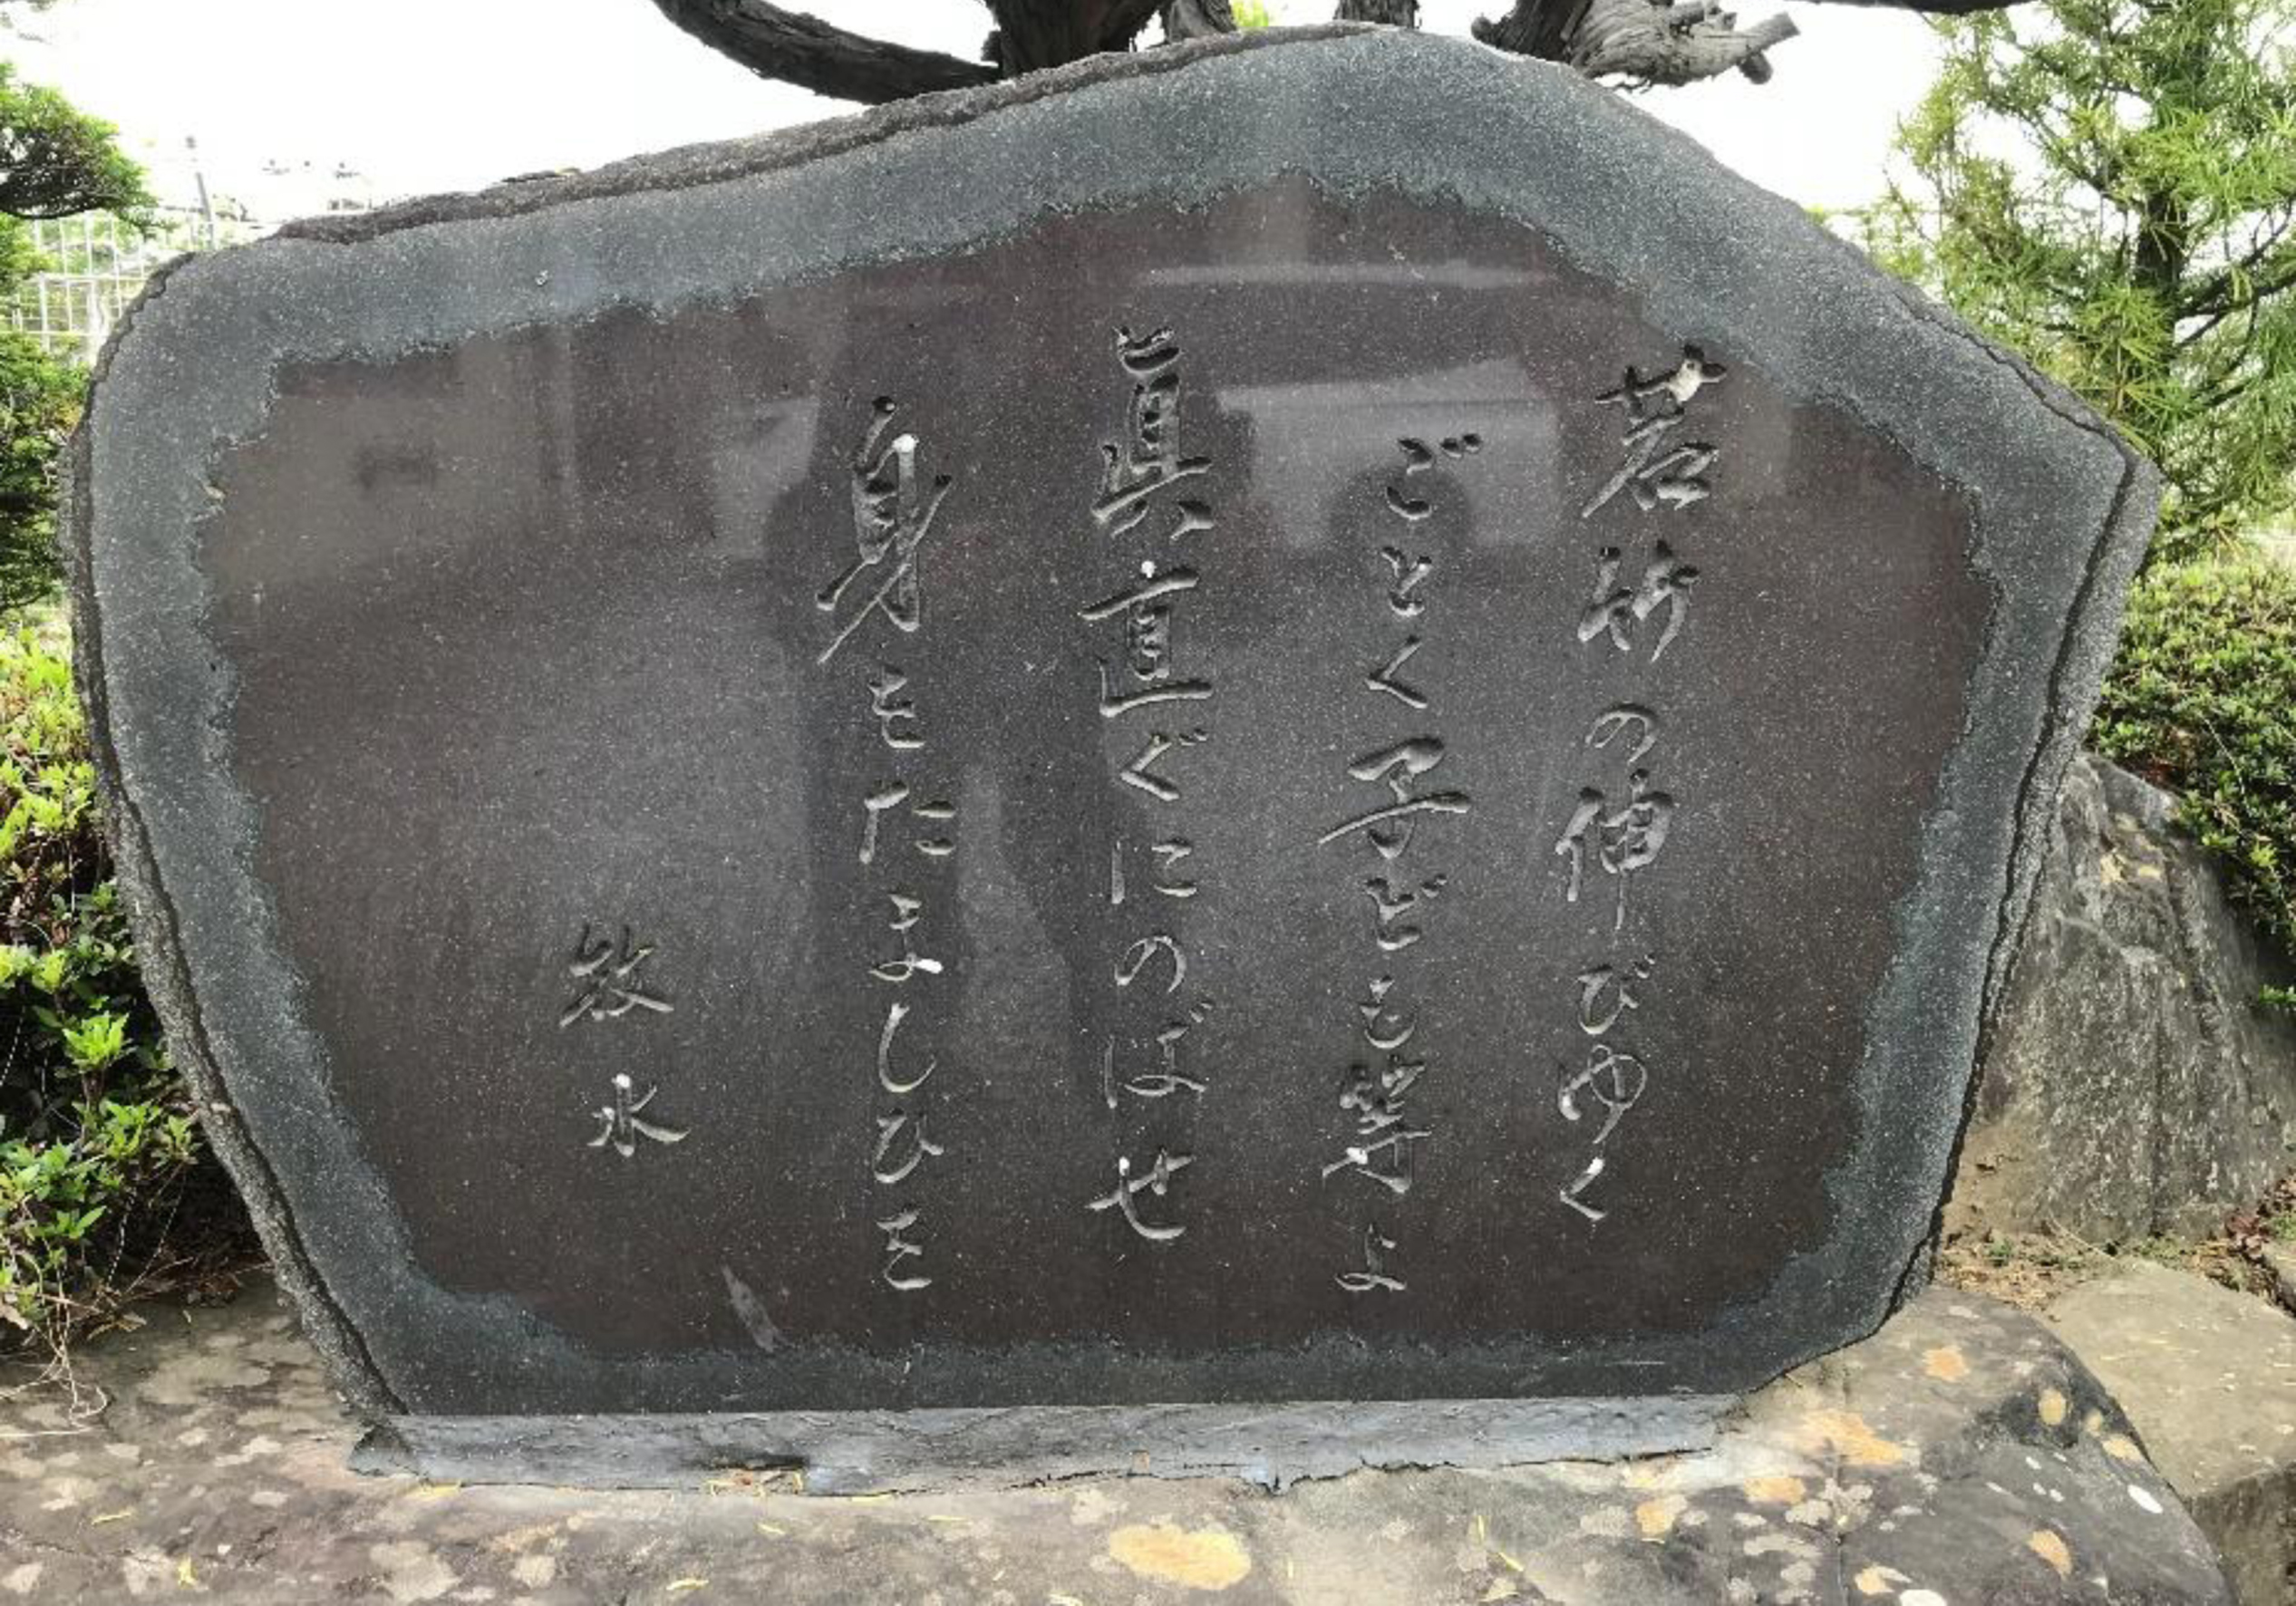 若竹の伸びゆく
ごとく子ども等よ
眞直ぐにのばせ
身をたましひを
牧水